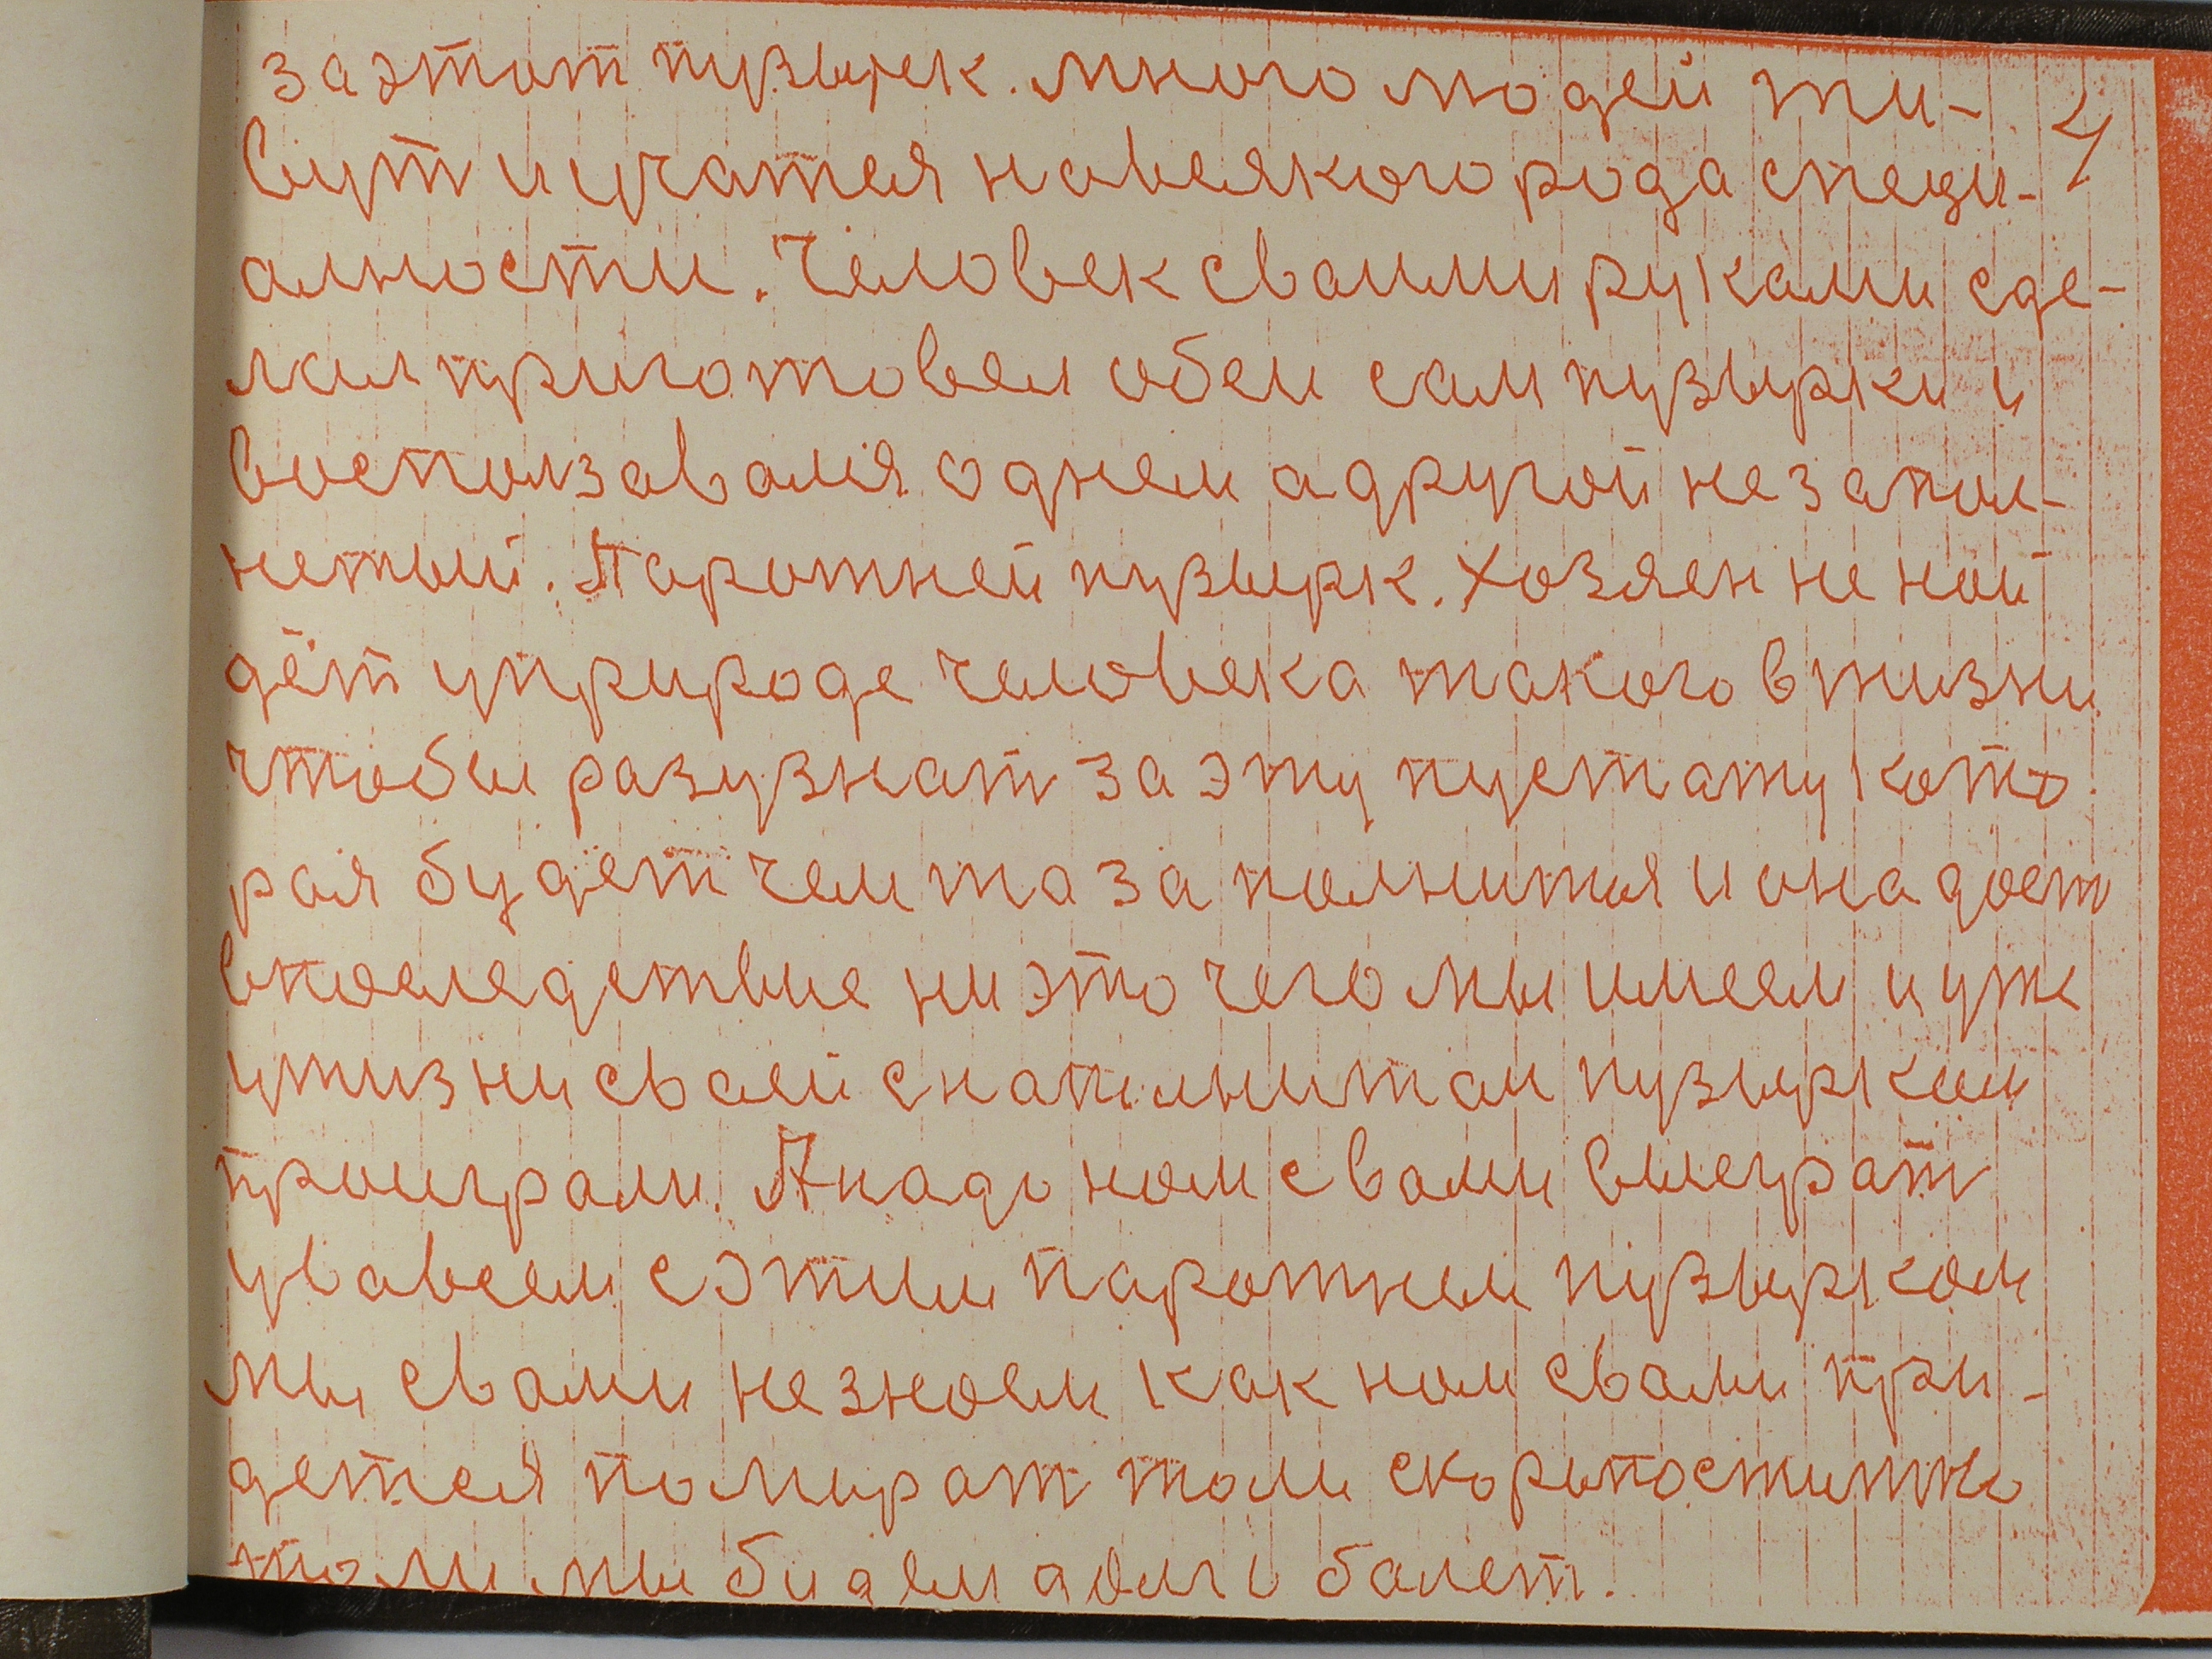 за этот пузырек. много людей жи-
4
вут и учатся на всякого рода специ-
алности. Человек сваими руками сде-
лал приготовел обеи сам пузырки и
восползавался однем а другой не запол-
нетый. Парожней пузырк. Хозяен не най
дёт у природе человека такого в жизни
чтобы разузнат за эту пустату кото
рая будет чем та за полнится и она дает
впоследствие ни это чего мы имеем и уже
у жизни сваей с наполнитам пузырком
проиграли. А надо нам с вами выеграт
у вавсем с этим парожнем пузырком
мы с вами не знаем как нам с вами при-
детея помират толи скорыпостижно
толи мы будем долго болет.